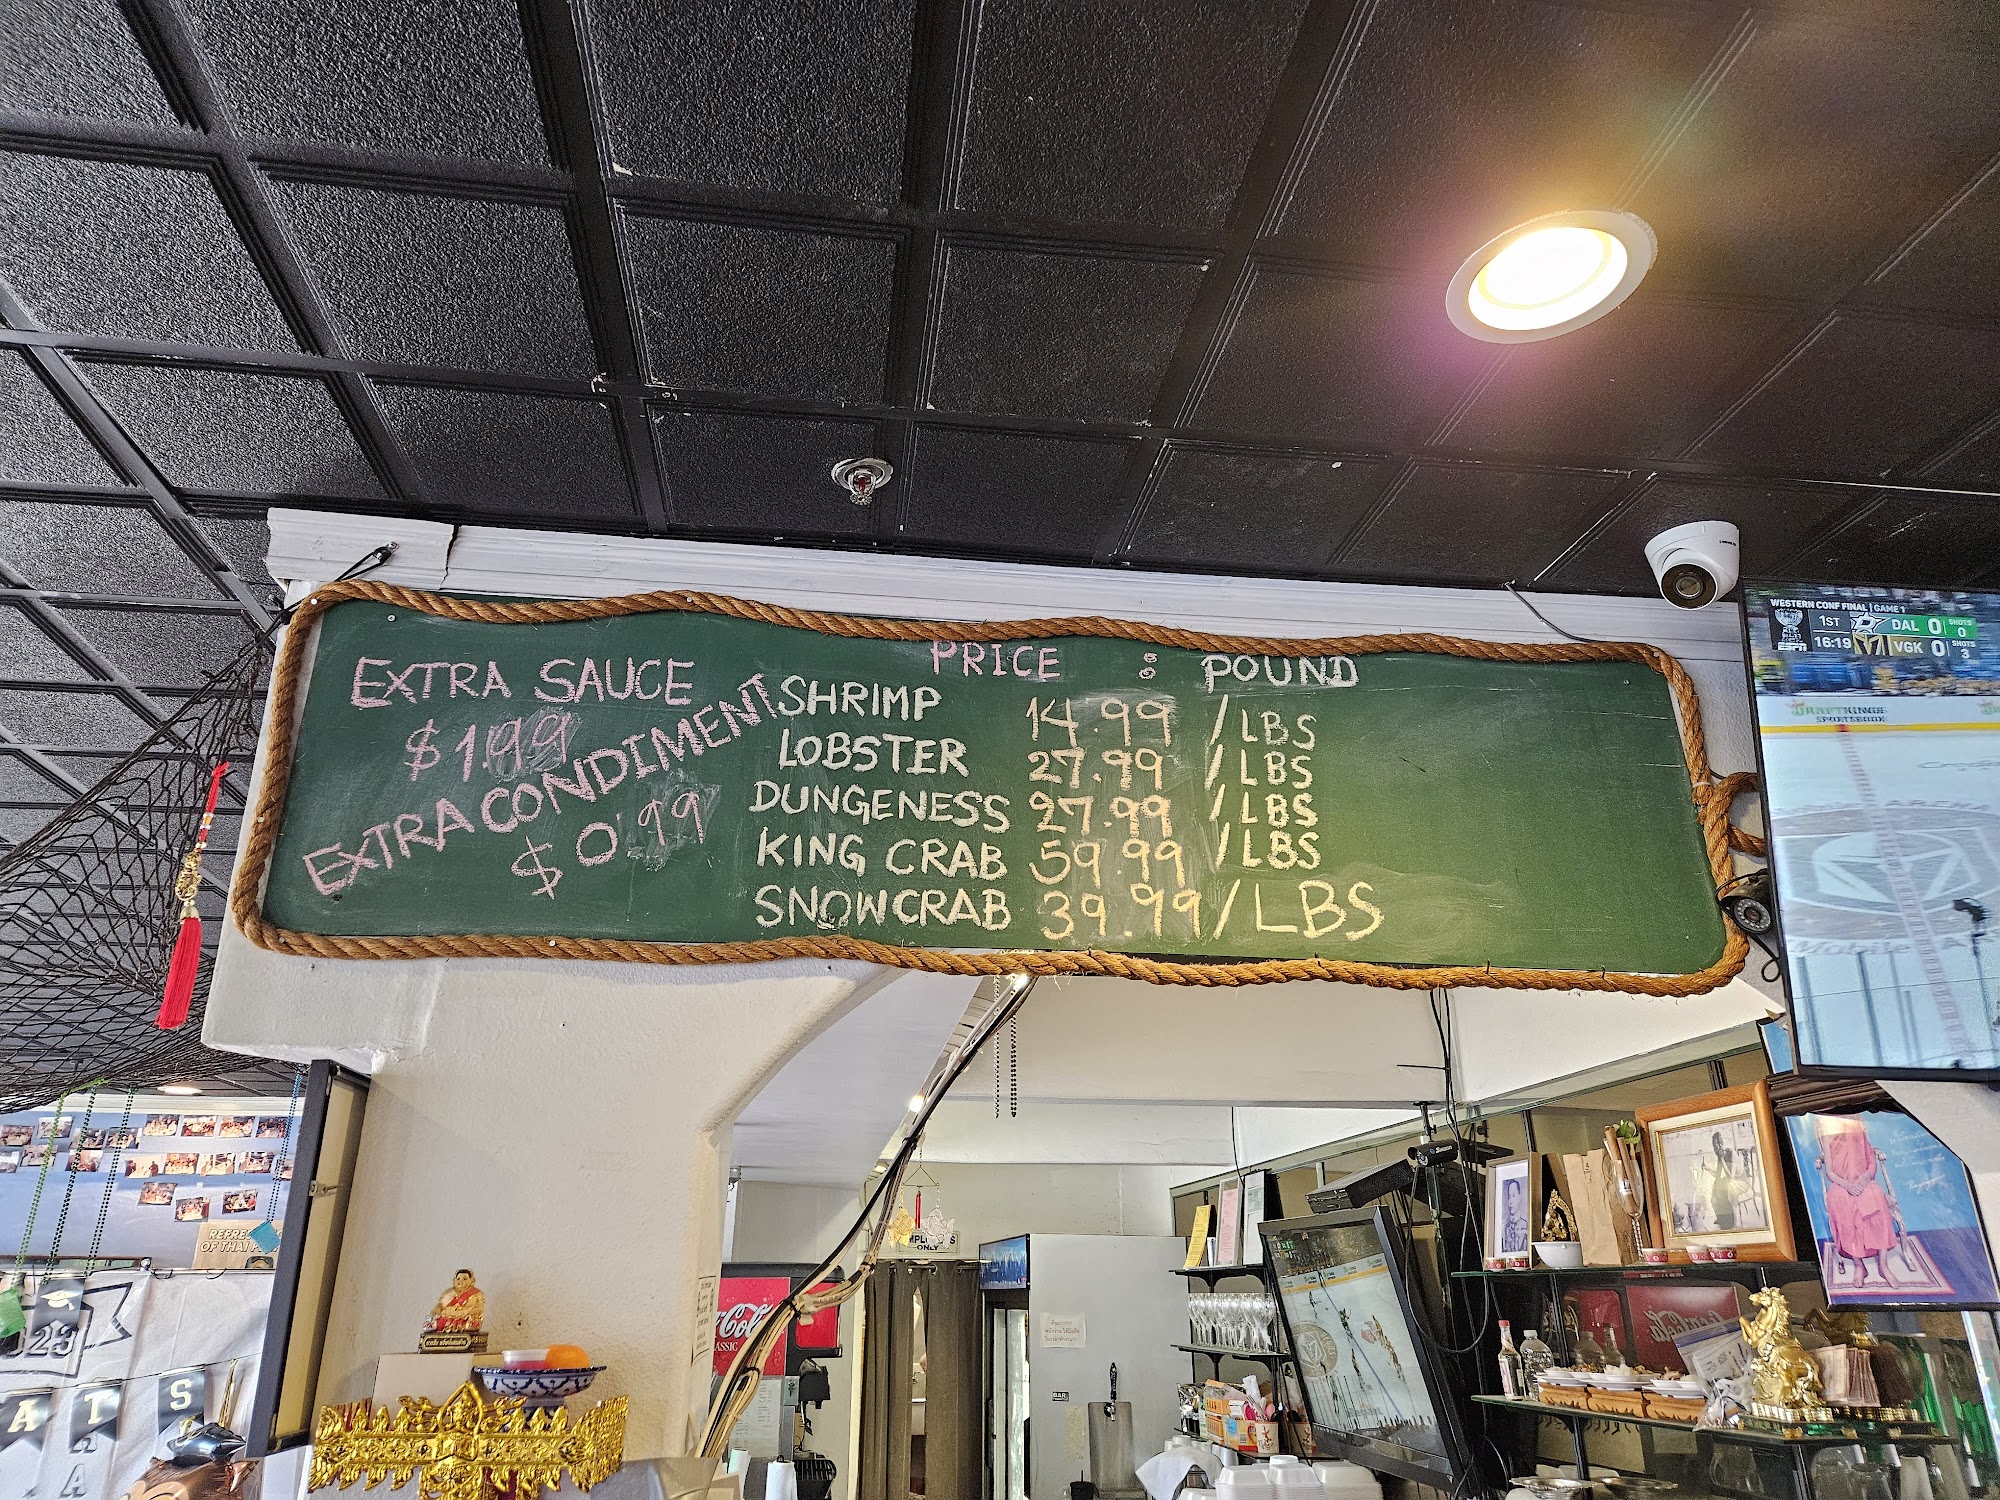 EXTRA SAUCE
$1.99
EXTRA CONDIMENT
$0.99
PRICE : POUND
SHRIMP 14.99 /LBS
LOBSTER 27.99 /LBS
DUNGENESS 27.99 /LBS
KING CRAB 59.99 /LBS
SNOWCRAB 39.99 /LBS
WESTERN CONF FINAL | GAME 1
1ST DAL 0 SHOTS 0
ESPN 16:19 VGK 0 SHOTS 3
DRAFTKINGS
SPORTSBOOK
OF THAI
ONLY
Coca-Cola
CLASSIC
A T S